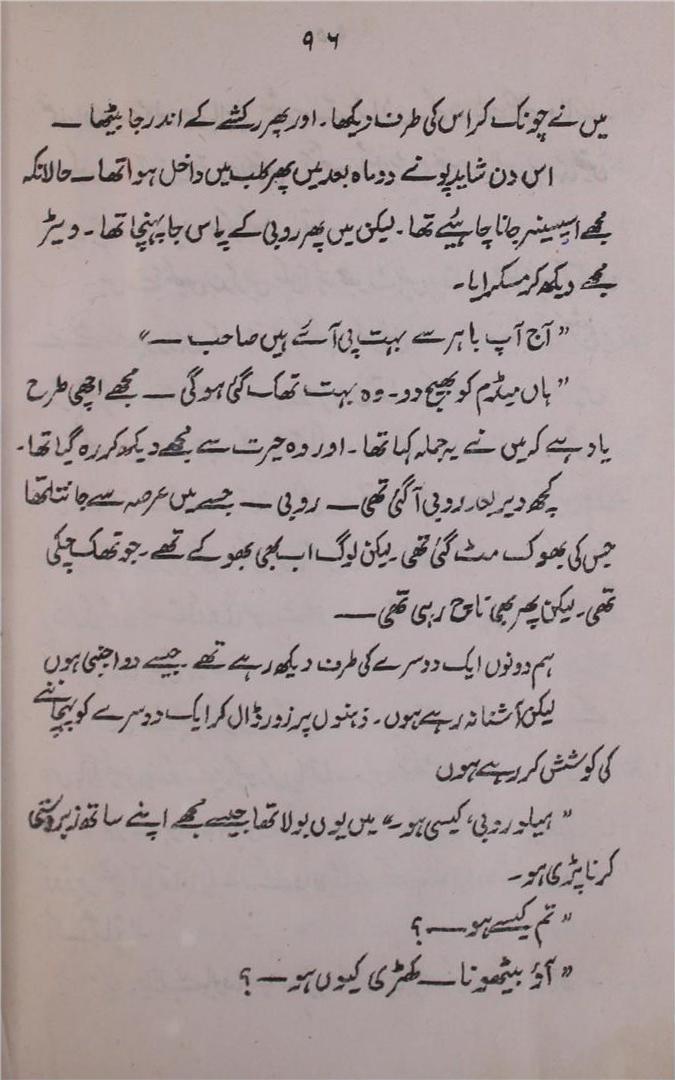 ۹۶
میں نے چونک کر اس کی طرف دیکھا۔ اور پھر رکشے کے اندر جا بیٹھا —
اس دن شاید پونے دو ماہ بعد میں پھر کلب میں داخل ہوا تھا — حالانکہ
مجھے اسپینسر جانا چاہیئے تھا۔ لیکن میں پھر روبی کے پاس جا پہنچا تھا۔ ویٹر
مجھے دیکھ کر مسکرایا۔
"آج آپ باہر سے بہت پی آئے ہیں صاحب —"
"ہاں میڈم کو بھیج دو۔ وہ بہت تھک گئی ہو گی — مجھے اچھی طرح
یاد ہے کہ میں نے یہ جملہ کہا تھا۔ اور وہ حیرت سے مجھے دیکھ کر رہ گیا تھا۔
کچھ دیر بعد روبی آ گئی تھی — روبی — جسے میں عرصہ سے جانتا تھا
جس کی بھوک مٹ گئی تھی۔ لیکن لوگ اب بھی بھوکے تھے۔ جو تھک چکی
تھی۔ لیکن پھر بھی ناچ رہی تھی —
ہم دونوں ایک دوسرے کی طرف دیکھ رہے تھے۔ جیسے دو اجنبی ہوں
لیکن آشنا نہ رہے ہوں۔ ذہنوں پر زور ڈال کر ایک دوسرے کو پہچاننے
کی کوشش کر رہے ہوں
"ہیلو روبی، کیسی ہو۔" میں یوں بولا تھا جیسے مجھے اپنے ساتھ زبردستی
کرنا پڑی ہو۔
"تم کیسے ہو — ؟
"آؤ بیٹھو نا — کھڑی کیوں ہو — ؟